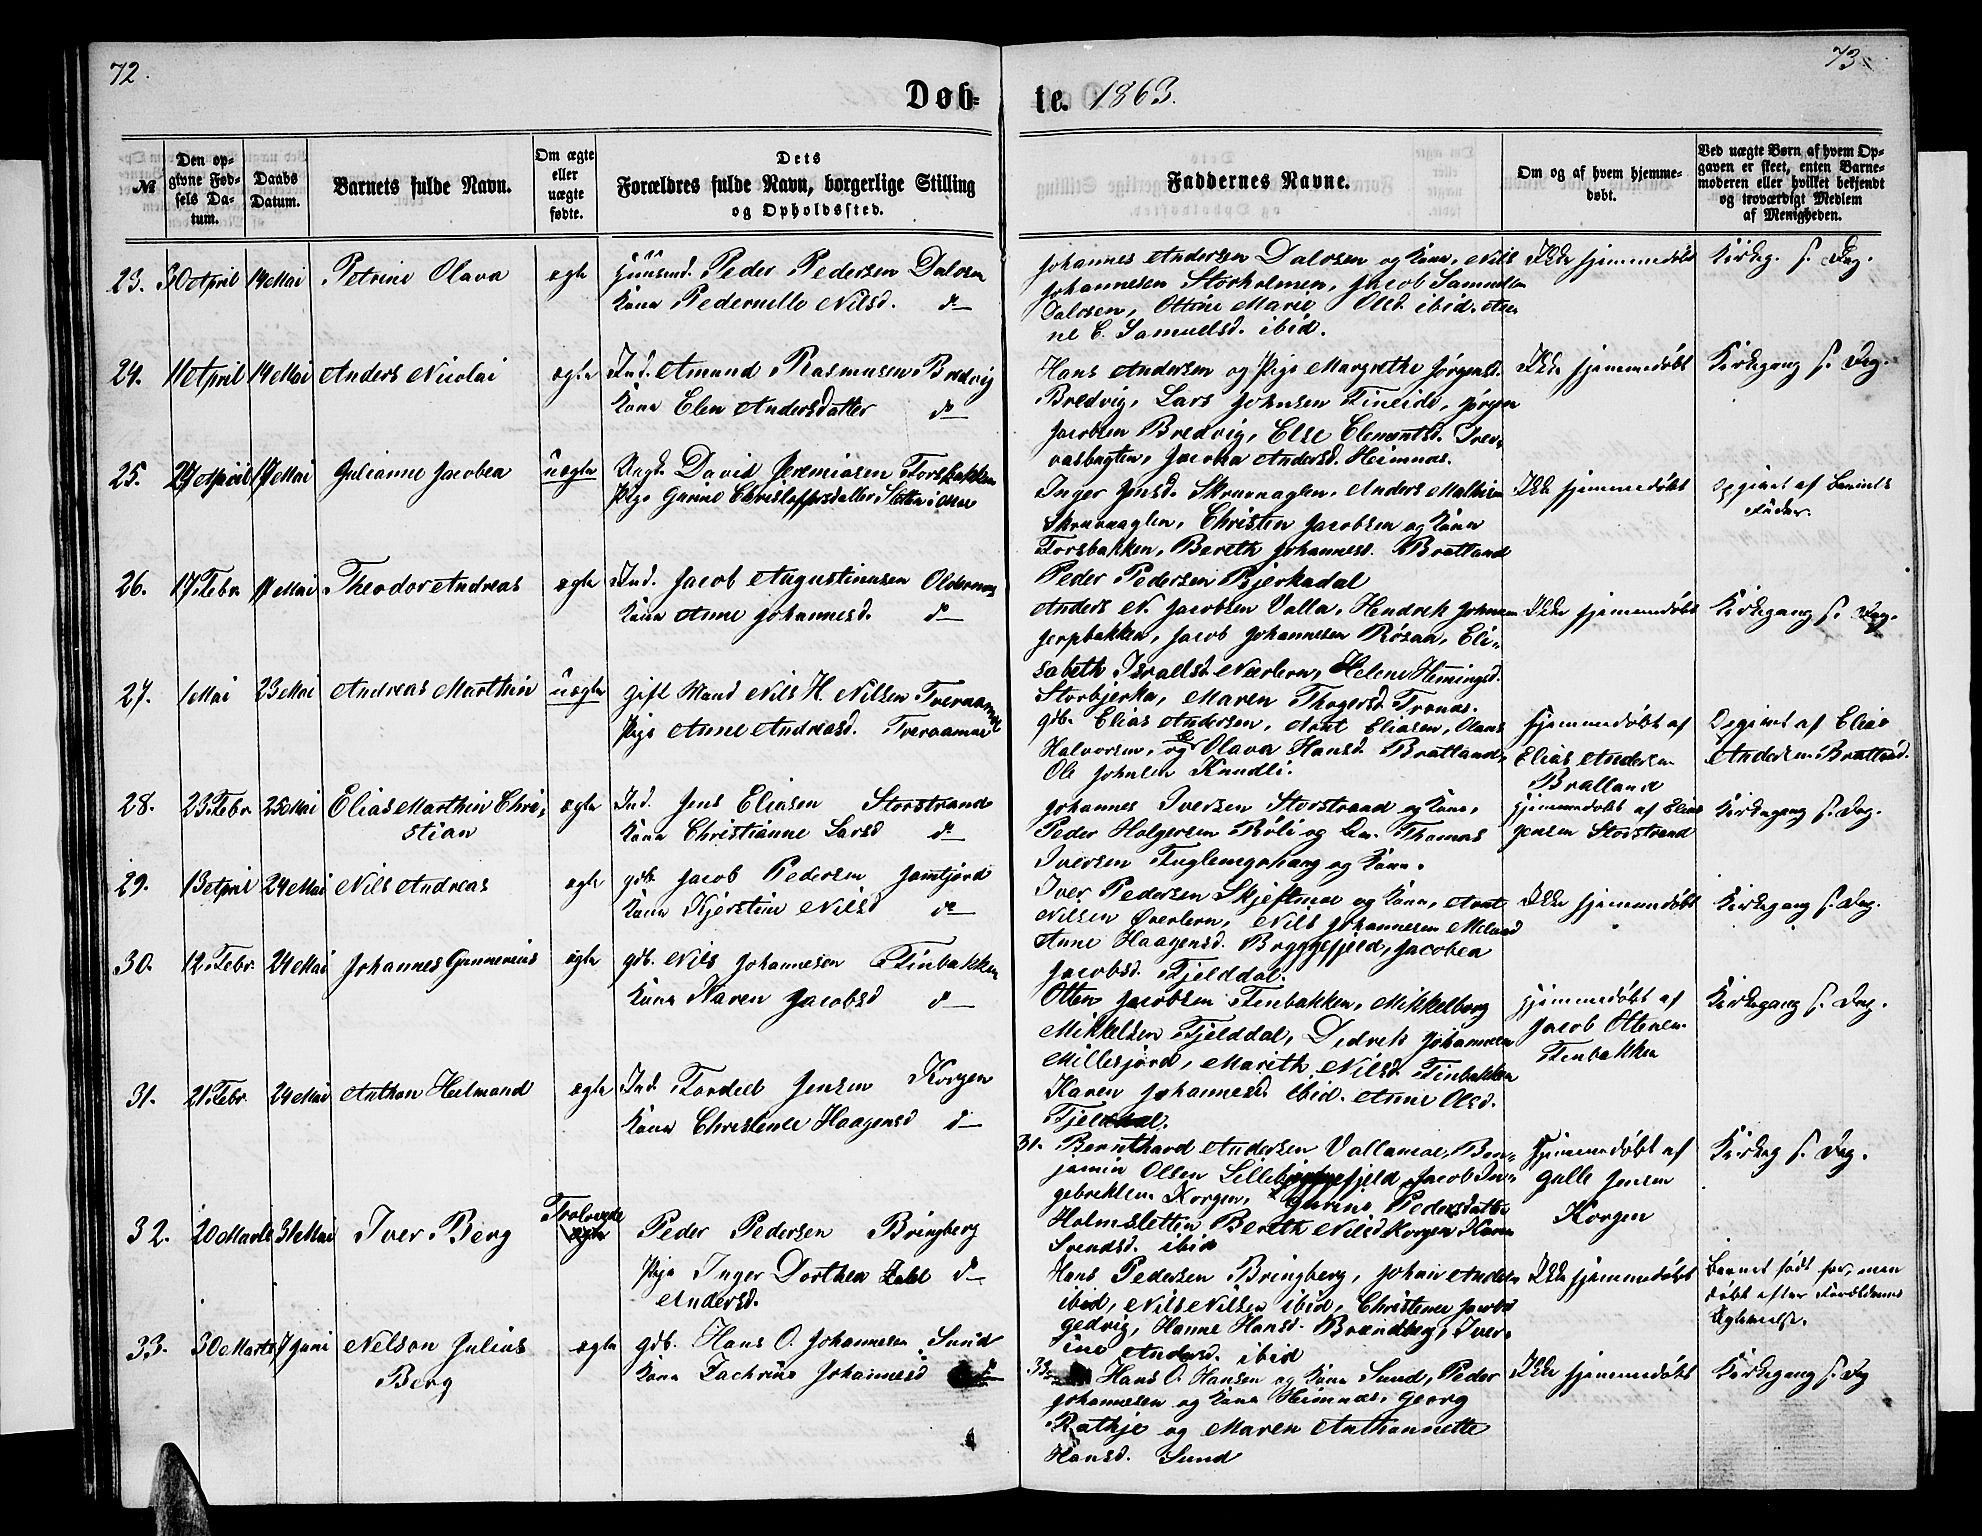 72.
73.
Døb-
te. 1863.
№
Den op-
givne Fød-
sels Da-
tum.
Daabs
Datum.
Barnets fulde Navn.
Om ægte
eller
uægte
fødte.
Dets
Forældres fulde Navn, borgerlige Stilling
og Opholdssted.
Faddernes Navne.
Om og af hvem hjemme-
døbt.
Ved uægte Børn af hvem Op-
gaven er skeet, enten Barne-
moderen eller hvilket bekjendt
og troværdigt Medlem
af Menigheden.
23. 30 April 14 Mai Petrine Olava ægte Huusmd. Peder Pedersen Dalosen
Kone Pedernelle Nilsd. do
Johannes Andersen Dalosen og Kone, Nils
Johannesen Storholmen, Jacob Samuelsen
Dalosen, Ottine Marie Olsd. ibid. An-
ne C. Samuelsd. ibid.
Ikke hjemmedøbt
Kirkeg. s. Dag.
24. 11 April 14 Mai Anders Nicolai ægte Ind. Amund Rasmusen Bredvig
Kone Elen Andersdatter do
Hans Andersen og Pige Margrethe Jørgensd.
Bredvig, Lars Johnsen Fineide, Jørgen
Jacobsen Bredvig, Else Clementsd.
Jacobea Andersd. Heimnæs.
Ikke hjemmedøbt
Kirkegang s. Dag.
25. 17 Mai Julianne Jacobea uægte Ungk. David Jeremiasen Forsbakken
Pige Gurine Christophersdatter,
Inger Jensd. Skravnaglen, Anders Mathisen
Skravnaglen, Christen Jacobsen og Kone
Forsbakken, Bereth Johannesd. Bratland
Peder Pedersen Bjerkadal
Ikke hjemmedøbt
Opgivet af Barnets
Fader.
26. 17 Febr. 17 Mai Theodor Andreas ægte Ind. Jacob Augustinusen Oldernæs
Kone Anne Johannesd. do
Anders N. Jacobsen Valla, Hendrik Johnsen
Jerpbakken, Jacob Johannesen Røsaa, Eli-
sabeth Israelsd. Nerlern, Helene Hemingsd.
Storbjerka, Maren Thogersd. Tronæs.
Ikke hjemmedøbt
Kirkegang s. Dag.
27. 1 Mai 23 Mai Andreas Marthin uægte Gift Mand Nils H. Nilsen Tveraamoe
Pige Anne Andreasd. Tveraamoe
gdb. Elias Andersen, Arnt Eliasen, Olaus
Halvorsen, og Olava Hansd. Bratland,
Ole Johnsen Knudli.
Hjemmedøbt af
Elias Andersen
Bratland
Opgivet af Elias
Andersen Bratland.
28. 23 Febr. 25 Mai Elias Marthin Chri-
stian ægte Ind. Jens Eliasen Storstrand
Kone Christianne Larsd do
Johannes Iversen Storstrand og Kone,
Peder Holgersen Røli og Do. Thomas
Iversen og Kone.
Hjemmedøbt af Elias
Jensen Storstrand
Kirkegang s. Dag.
29. 13 April 24 Mai Nils Andreas ægte gdb. Jacob Pedersen Jamtjord
Kone Kjerstine Nilsd do
Iver Pedersen Skjeftmoe og Kone, Arnt
Nilsen Øverlern, Nils Johannesen
Anne Haagensd. Bryggfjeld, Jacobea
Jacobsd. Fjelddal.
Ikke hjemmedøbt
Kirkegang s. Dag.
30. 12 Febr. 24 Mai Johannes Gunnerius ægte gdb. Nils Johannesen Finbakken
Kone Karen Jacobsd do
Otten Jacobsen Finbakken, Mikkelborg
Mikkelsen Fjelddal, Didrik Johannesen
Millesjord, Marith Nilsd. Finbakken
Karen Johannesd. ibid. Anne Olsd.
Fjelddal.
Hjemmedøbt af
Jacob Ottesen
Finbakken
Kirkegang s. Dag.
31. 21 Febr. 24 Mai Anthon Helmand ægte Ind. Jensen Korgen
Kone Christence Haagensd do
31. Bernthard Andersen Vallamoe, Ben-
jamin Olsen Lillebryggefjeld, Jacob In-
gebrektsen Korgen, Gurine Pedersdatter
Holmsletten Bereth Nilsd Korgen Karen
Svendsd. ibid
Hjemmedøbt af
Galle Jensen
Korgen
Kirkeg s. Dag.
32. 20 Marts 31 Mai Iver Berg Trolovede
ægte Peder Pedersen Bringberg
Pige Inger Dorthea Zahl do
Andersd.
Hans Pedersen Bringberg, Johan Andersen
ibid, Nils Nilsen ibid, Christence Jacobsd
Hanne Hansd. Brændberg, Iver-
ine Andersd. ibid
Ikke hjemmedøbt
Barnet født før, men
døbt efter Forældrenes
Ægtevielse.
33. 30 Marts 7 Juni Nelson Julius
Berg ægte gdb. Hans O. Johannesen Sund
Kone Zachrine Johannesd do
33. Hans O. Hansen og Kone Sund, Peder
Johannesen og Kone Heimnæs, Georg
Rathje og Maren Anthonnette
Hansd. Sund
Ikke hjemmedøbt
Kirkegang s. Dag